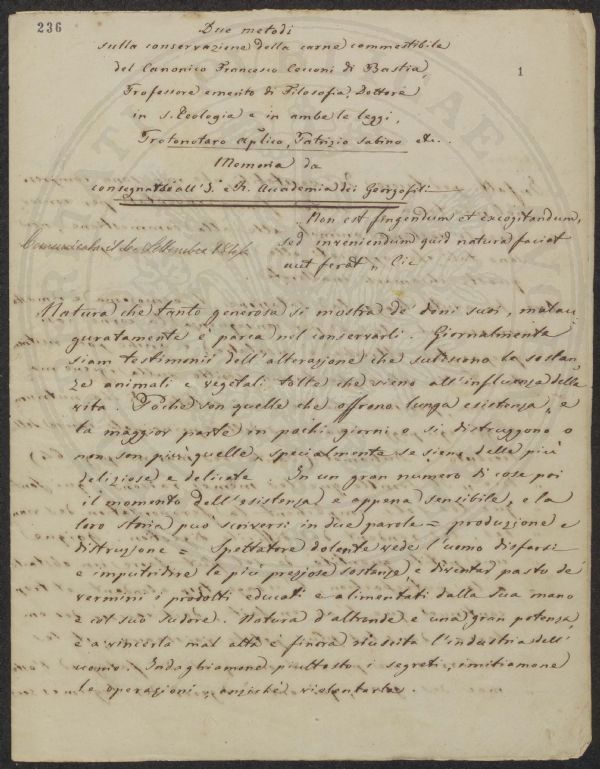 236
1
Due metodi
sulla conservazione della carne commestibile
del Canonico Francesco Cecconi di Bastia,
Professore emerito di Filosofia, Dottore
in S. Teologia e in ambe le leggi,
Protonotaro Aplico, Patrizio Sabino &c.
Memoria da
consegnarsi all' I. e R. Accademia dei Georgofili
Non est fingendum et excogitandum,
sed inveniendum quid natura faciat
aut ferat „ Cic
Comunicata Settembre
Natura che tanto generosa si mostra de' doni suoi, malau
guratamente è parca nel conservarli. Giornalmente
siam testimonii dell' alterazione che subiscono le sostan
ze animali e vegetali tolte che sieno all' influenza della
vita. Poche son quelle che offrono lunga esistenza, e
la maggior parte in pochi giorni o si distruggono o
non son più quelle, specialmente se siene delle più
deliziose e delicate. In un gran numero di cose poi
il momento dell' esistenza è appena sensibile, e la
loro storia può scriversi in due parole = produzione e
distruzione = Spettatore dolente vede l'uomo disfarsi
e imputridire le più preziose sostanze, e diventar pasto de'
vermini i prodotti educati e alimentati dalla sua mano
e col suo sudore. Natura d'altronde è una gran potenza
e a vincerla mal atta è finora riuscita l'industria dell'
uomo. Indaghiamone piuttosto i segreti, imitiamone
le operazioni, anziché violentarla.